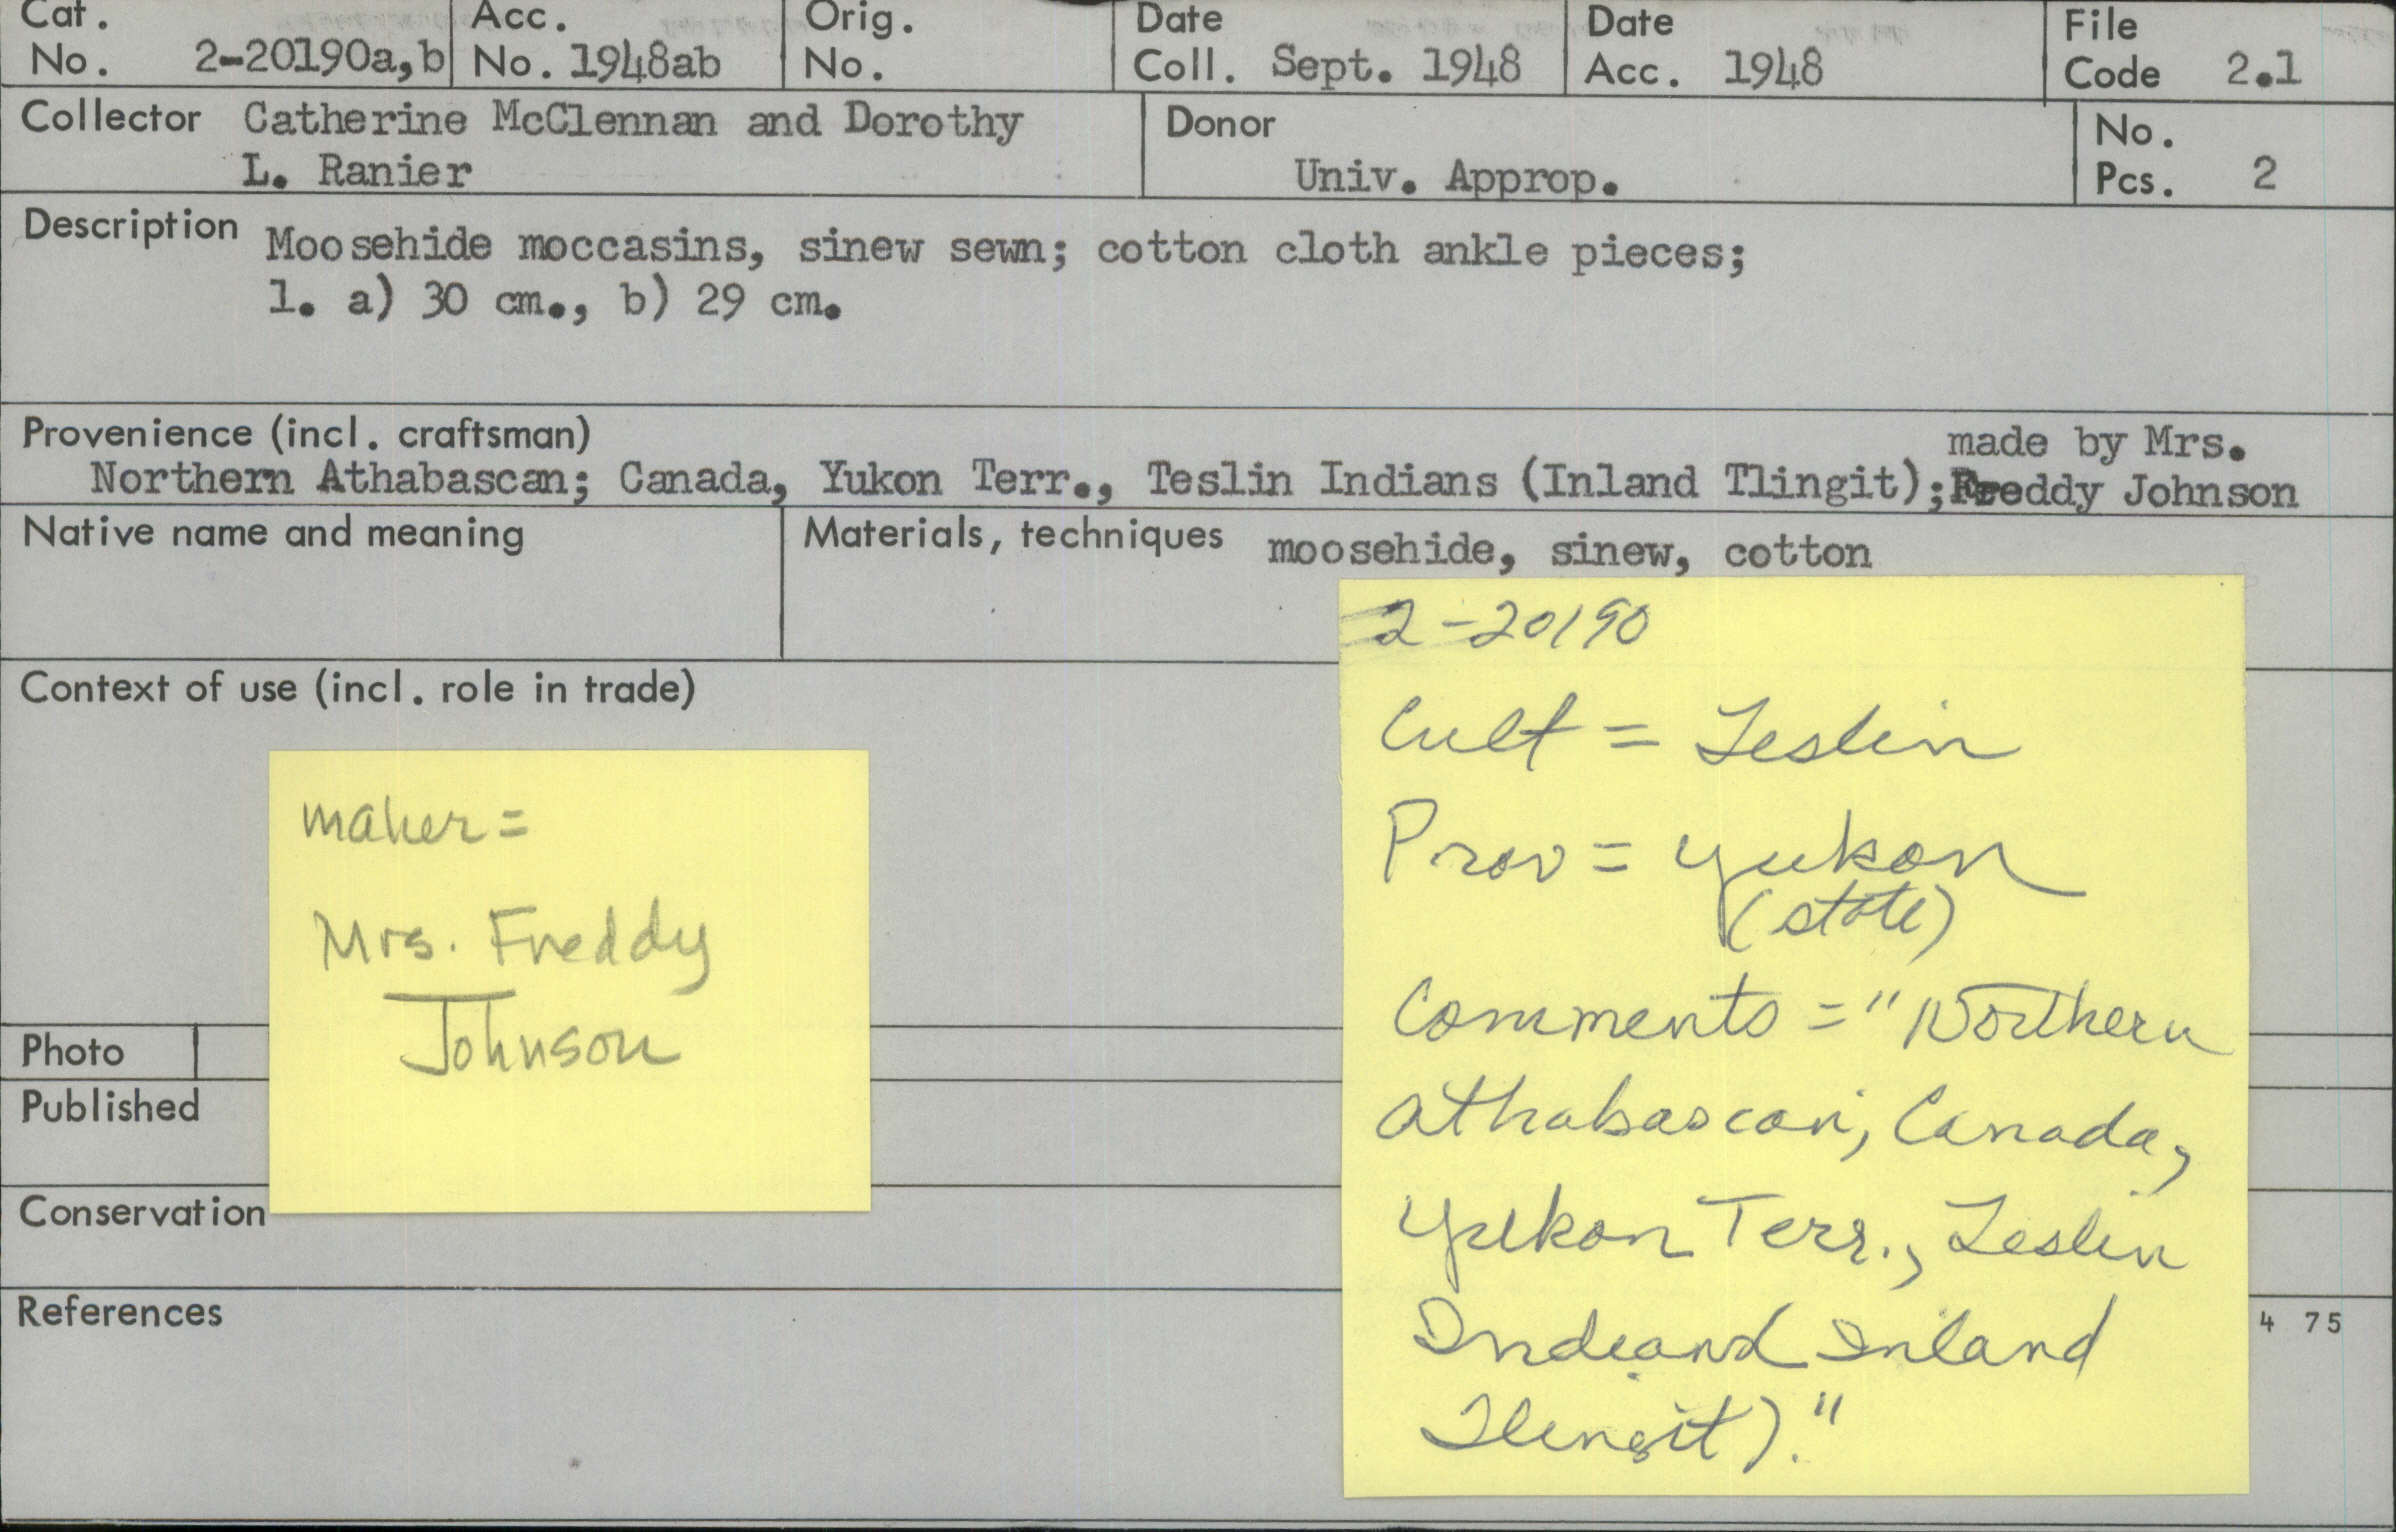 Cat. No. 2-20190a,b
Acc. No. 1948ab
Orig. No.
Date Coll. Sept. 1948
Date Acc. 1948
File Code 2.1
Collector Catherine McClennan and Dorothy
L. Ranier
Donor
Univ. Approp.
No. Pcs. 2
Description Moosehide moccasins, sinew sewn; cotton cloth ankle pieces;
l. a) 30 cm., b) 29 cm.
Provenience (incl. craftsman)
Northern Athabascan; Canada, Yukon Terr., Teslin Indians (Inland Tlingit); made by Mrs.
Freddy Johnson
Native name and meaning
Materials, techniques moosehide, sinew, cotton
Context of use (incl. role in trade)
Photo
Published
Conservation
References
4 75
maker =
Mrs. Freddy
Johnson
2-20190
Cult = Teslin
Prov = Yukon
(state)
Comments = "Northern
Athabascan; Canada,
Yukon Terr., Teslin
Inland
Tlingit)."